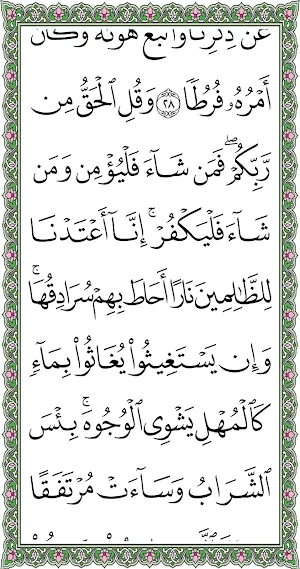 عَن ذِكْرِنَا وَاتَّبَعَ هَوَىٰهُ وَكَانَ
أَمْرُهُۥ فُرُطًا ٢٨ وَقُلِ ٱلْحَقُّ مِن
رَّبِّكُمْ ۖ فَمَن شَآءَ فَلْيُؤْمِن وَمَن
شَآءَ فَلْيَكْفُرْ ۚ إِنَّآ أَعْتَدْنَا
لِلظَّٰلِمِينَ نَارًا أَحَاطَ بِهِمْ سُرَادِقُهَا ۚ
وَإِن يَسْتَغِيثُوا۟ يُغَاثُوا۟ بِمَآءٍ
كَٱلْمُهْلِ يَشْوِى ٱلْوُجُوهَ ۚ بِئْسَ
ٱلشَّرَابُ وَسَآءَتْ مُرْتَفَقًا